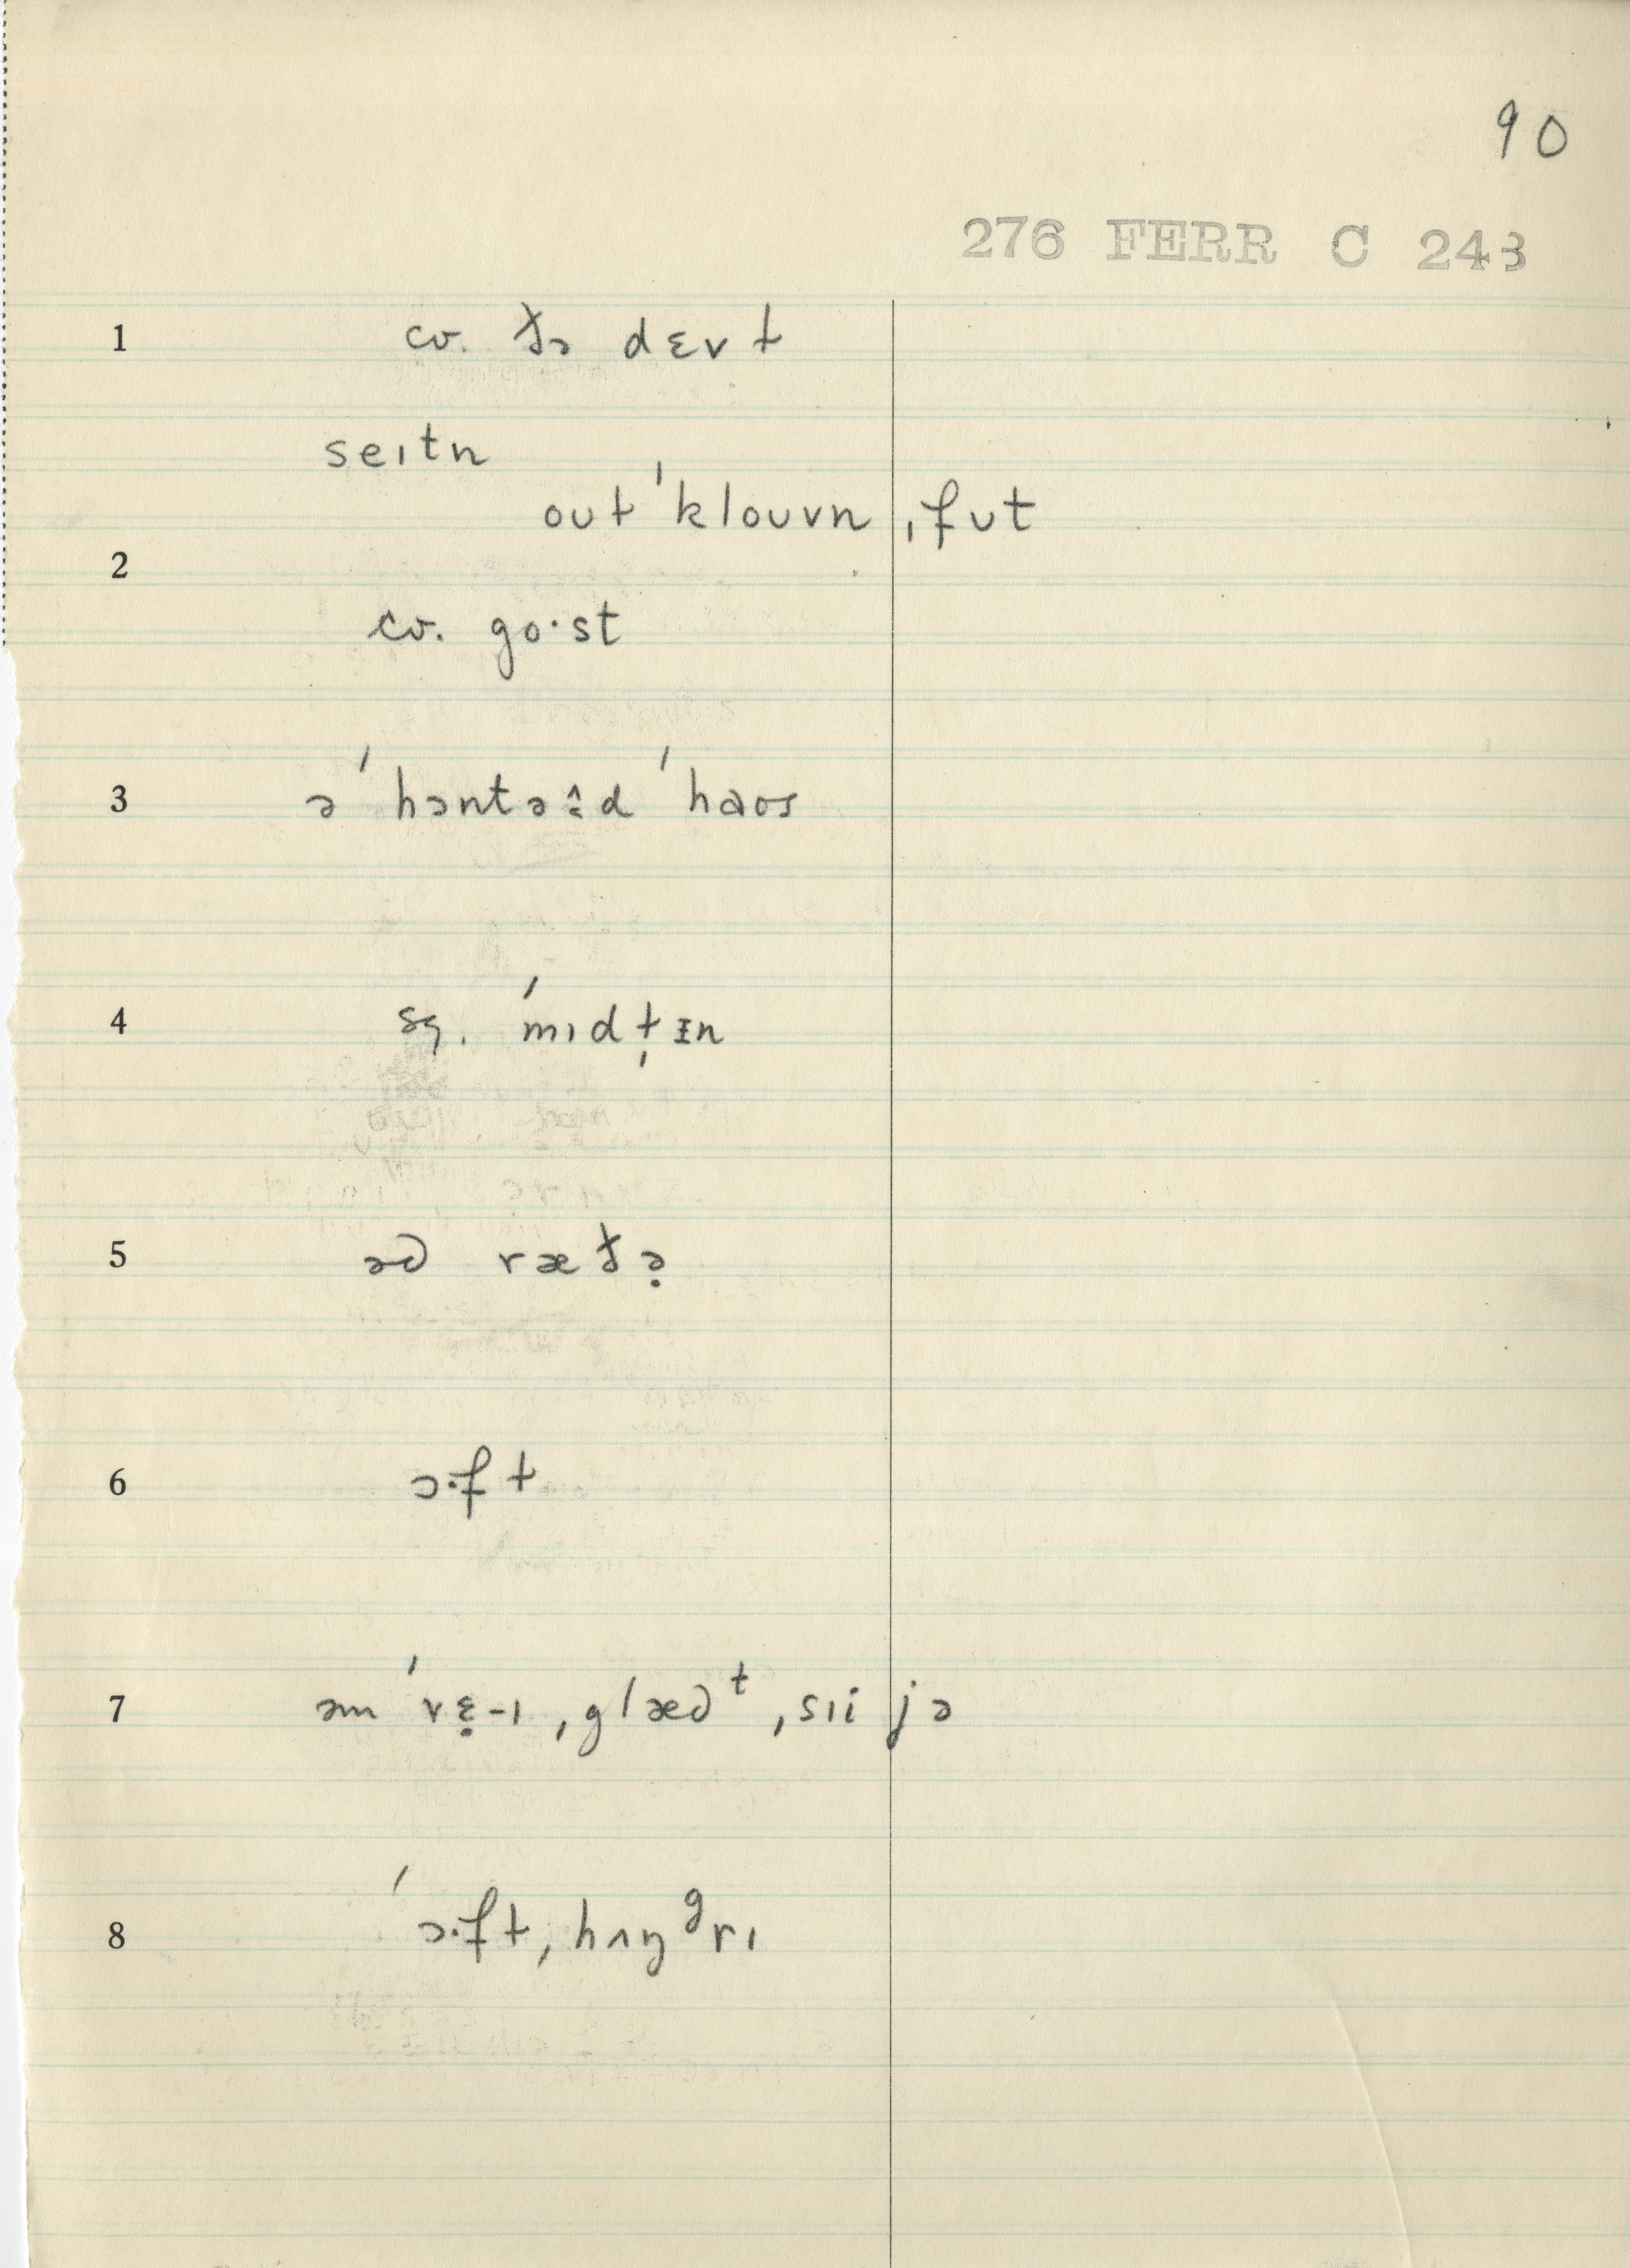 90
276 FERR C 243
1 cv. ðə dɛvɫ
seɪtn
oʊɫ ˈkloʊvn ˌfʊt
2
cv. go·st
3 ə ˈhɔntə˄d ˈhaʊs
4 sg. ˈmɪdɫ̩ᵻn
5 əd ræðə̣
6 ɔ·fɫ
7 əm ˈvɛ̣-ɪ ˌglædᵗ ˌsɪi jə
8 ˈɔ·fɫ, hʌŋᵍrɪ